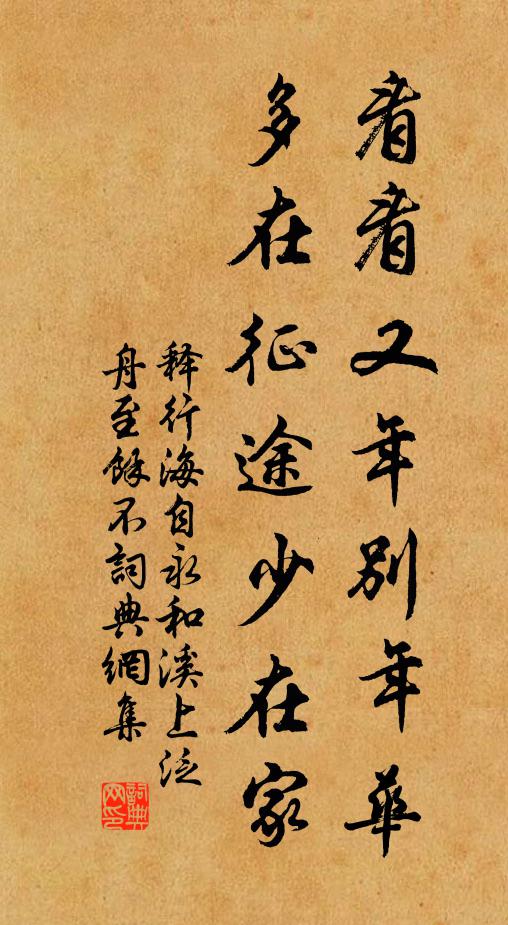 看看又年别年華
多在征途少在家
释行海自永和溪上泛
舟至餘不詞典網集
詞典網印